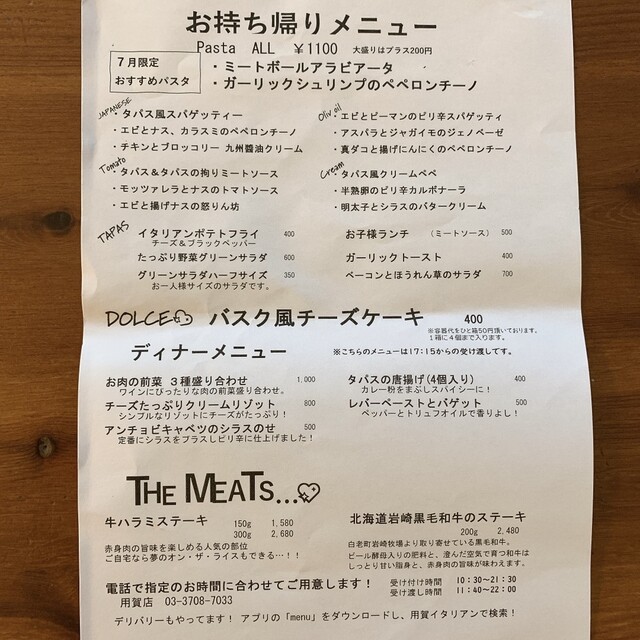 お持ち帰りメニュー
Pasta ALL ￥1100 大盛りはプラス200円
7月限定
おすすめパスタ
・ミートボールアラビアータ
・ガーリックシュリンプのペペロンチーノ
JAPANESE
・タパス風スパゲッティー
・エビとナス、カラスミのペペロンチーノ
・チキンとブロッコリー 九州醬油クリーム
Oliv oil
・エビとピーマンのピリ辛スパゲッティ
・アスパラとジャガイモのジェノベーゼ
・真ダコと揚げにんにくのペペロンチーノ
Tomato
・タパス＆タパスの拘りミートソース
・モッツァレラとナスのトマトソース
・エビと揚げナスの怒りん坊
Cream
・タパス風クリームペペ
・半熟卵のピリ辛カルボナーラ
・明太子とシラスのバタークリーム
TAPAS
イタリアンポテトフライ 400
チーズ＆ブラックペッパー
たっぷり野菜グリーンサラダ 600
グリーンサラダハーフサイズ 350
お一人様サイズのサラダです。
お子様ランチ （ミートソース） 500
ガーリックトースト 400
ベーコンとほうれん草のサラダ 700
DOLCE バスク風チーズケーキ 400
※容器代をひと箱50円頂いております。
1箱に4個まで入ります。
ディナーメニュー
※こちらのメニューは17:15からの受け渡しです。
お肉の前菜 3種盛り合わせ 1,000
ワインにぴったりな肉の前菜盛り合わせ。
チーズたっぷりクリームリゾット 800
シンプルなリゾットにチーズがたっぷり！
アンチョビキャベツのシラスのせ 500
定番にシラスをプラスしピリ辛に仕上げました！
タパスの唐揚げ(4個入り) 400
カレー粉をまぶしスパイシーに！
レバーペーストとバゲット 500
ペッパーとトリュフオイルで香りよし！
THE MEATS...
牛ハラミステーキ 150g 1,580
300g 2,680
赤身肉の旨味を楽しめる人気の部位
ご自宅なら夢のオン・ザ・ライスもできる…！！
北海道岩崎黒毛和牛のステーキ
200g 2,480
白老町岩崎牧場より取り寄せている黒毛和牛。
ビール酵母入りの肥料と、澄んだ空気で育つ和牛は
しっとり甘い脂身と、赤身肉の旨味が味わえます。
電話で指定のお時間に合わせてご用意します！
用賀店 03-3708-7033
受け付け時間 10:30～21:30
受け渡し時間 11:40～22:00
デリバリーもやってます！ アプリの「menu」をダウンロードし、用賀イタリアンで検索！